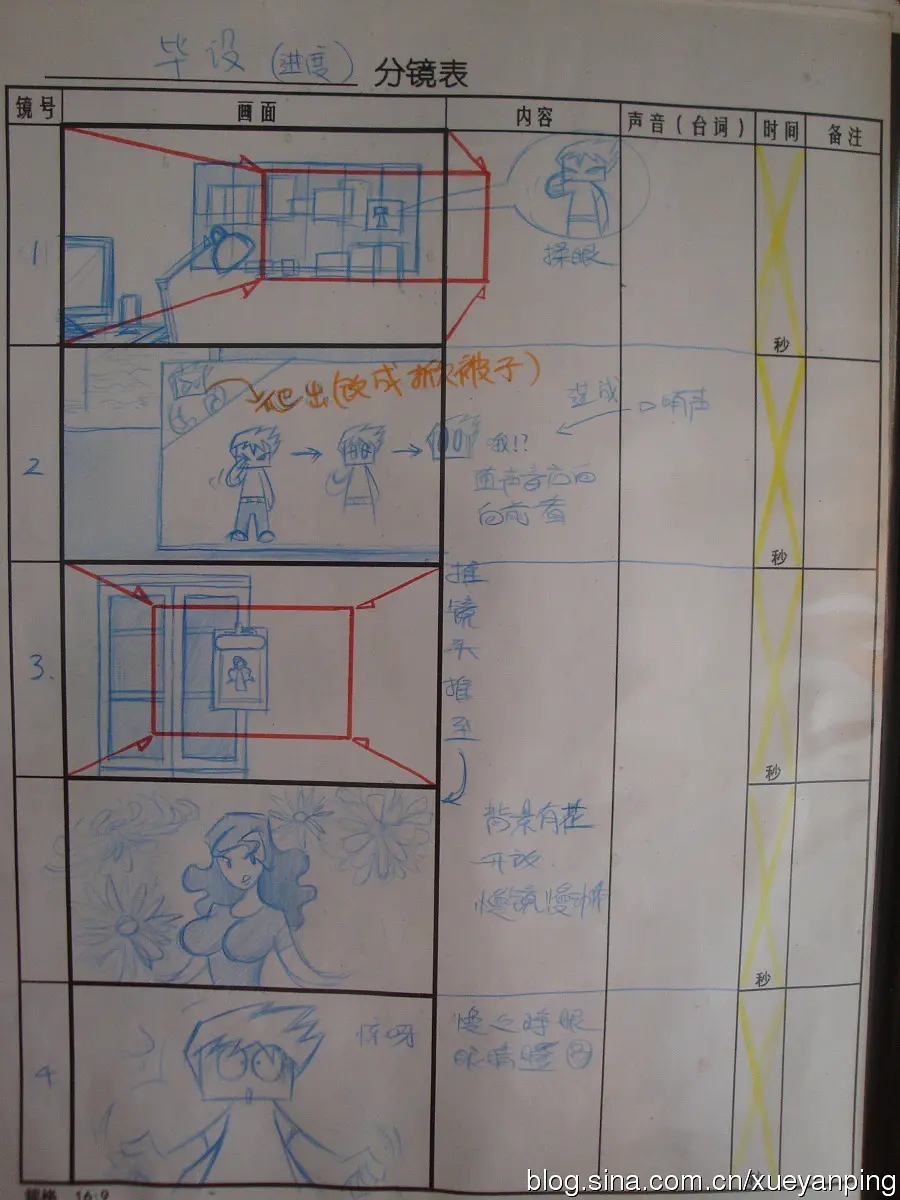 毕设（进度）分镜表
镜号 画面 内容 声音（台词） 时间 备注
1
揉眼
秒
爬出（改成掀被子）
2
哦!?
造成
响声
向前看
秒
3.
推
镜
头
推
至
秒
背景有花
开放
慢镜慢动作
秒
4
惊呀
慢慢睁眼
眼睛瞪圆
规格 16:9
blog.sina.com.cn/xueyanping